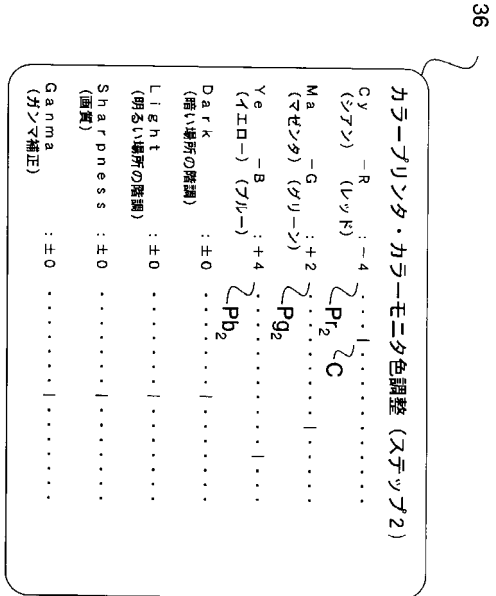 36
カラープリンタ・カラーモニタ色調整（ステップ2）
Cy －R ：－4 ・・・｜・・・・・・・・・・
（シアン）（レッド）
Pr2 C
Ma －G ：＋2 ・・・・・・・・・｜・・・・
（マゼンタ）（グリーン）
Pg2
Ye －B ：＋4 ・・・・・・・・・・・｜・・
（イエロー）（ブルー）
Pb2
Dark ：±0 ・・・・・・・｜・・・・・・
（暗い場所の階調）
Light ：±0 ・・・・・・・｜・・・・・・
（明るい場所の階調）
Sharpness ：±0 ・・・・・・・｜・・・・・・
（画質）
Ganma ：±0 ・・・・・・・｜・・・・・・
（ガンマ補正）